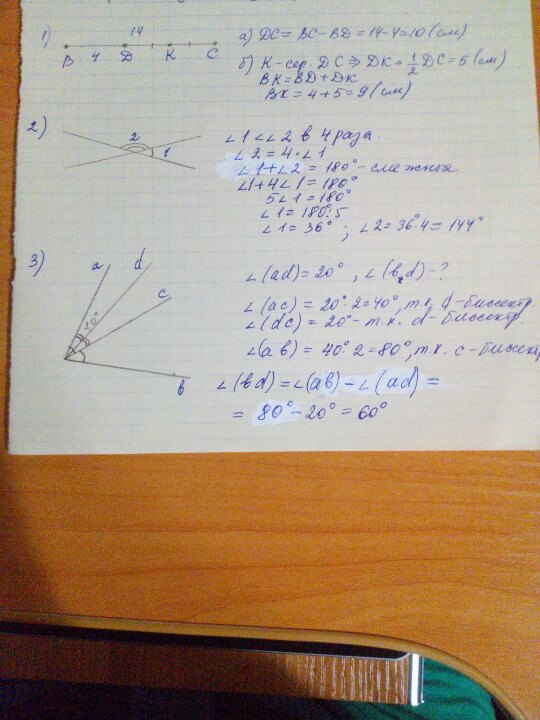 1) 14
B 4 D K C
а) DC = BC - BD = 14-4=10 (см)
б) K - сер. DC ⇒ DK = 1/2 DC = 5 (см)
BK = BD + DK
BK = 4+5 = 9 (см)
2)
2
1
∠1 < ∠2 в 4 раза.
∠2 = 4·∠1
∠1+∠2 = 180° - смежные
∠1+4∠1 = 180°
5∠1 = 180°
∠1 = 180:5
∠1 = 36° ; ∠2 = 36·4 = 144°
3)
a d c
20°
b
∠(ad) = 20° , ∠(b,d) - ?
∠(ac) = 20°·2=40°, т.к. d-биссектр
∠(dc) = 20° - т.к. d-биссектр.
∠(ab) = 40°·2=80°, т.к. c-биссект
∠(bd) = ∠(ab) - ∠(ad) =
= 80° - 20° = 60°